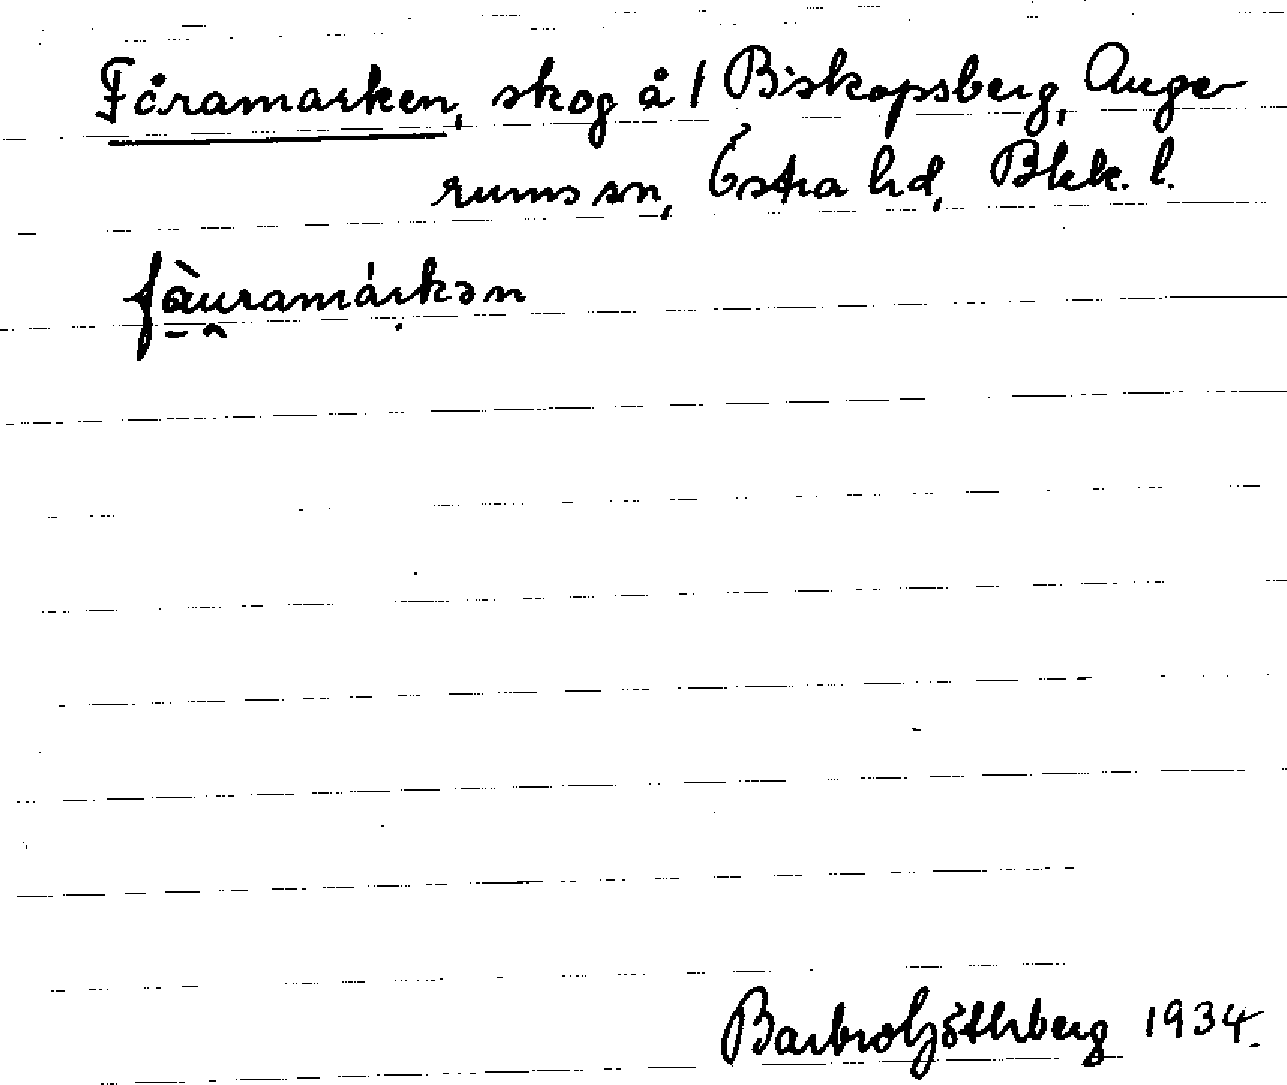 Fåramarken, skog å 1 Biskopsberg, Auge-
rums sn, Östra hd, Blek. l.
fàuramárkən
Barbro Göthberg 1934.